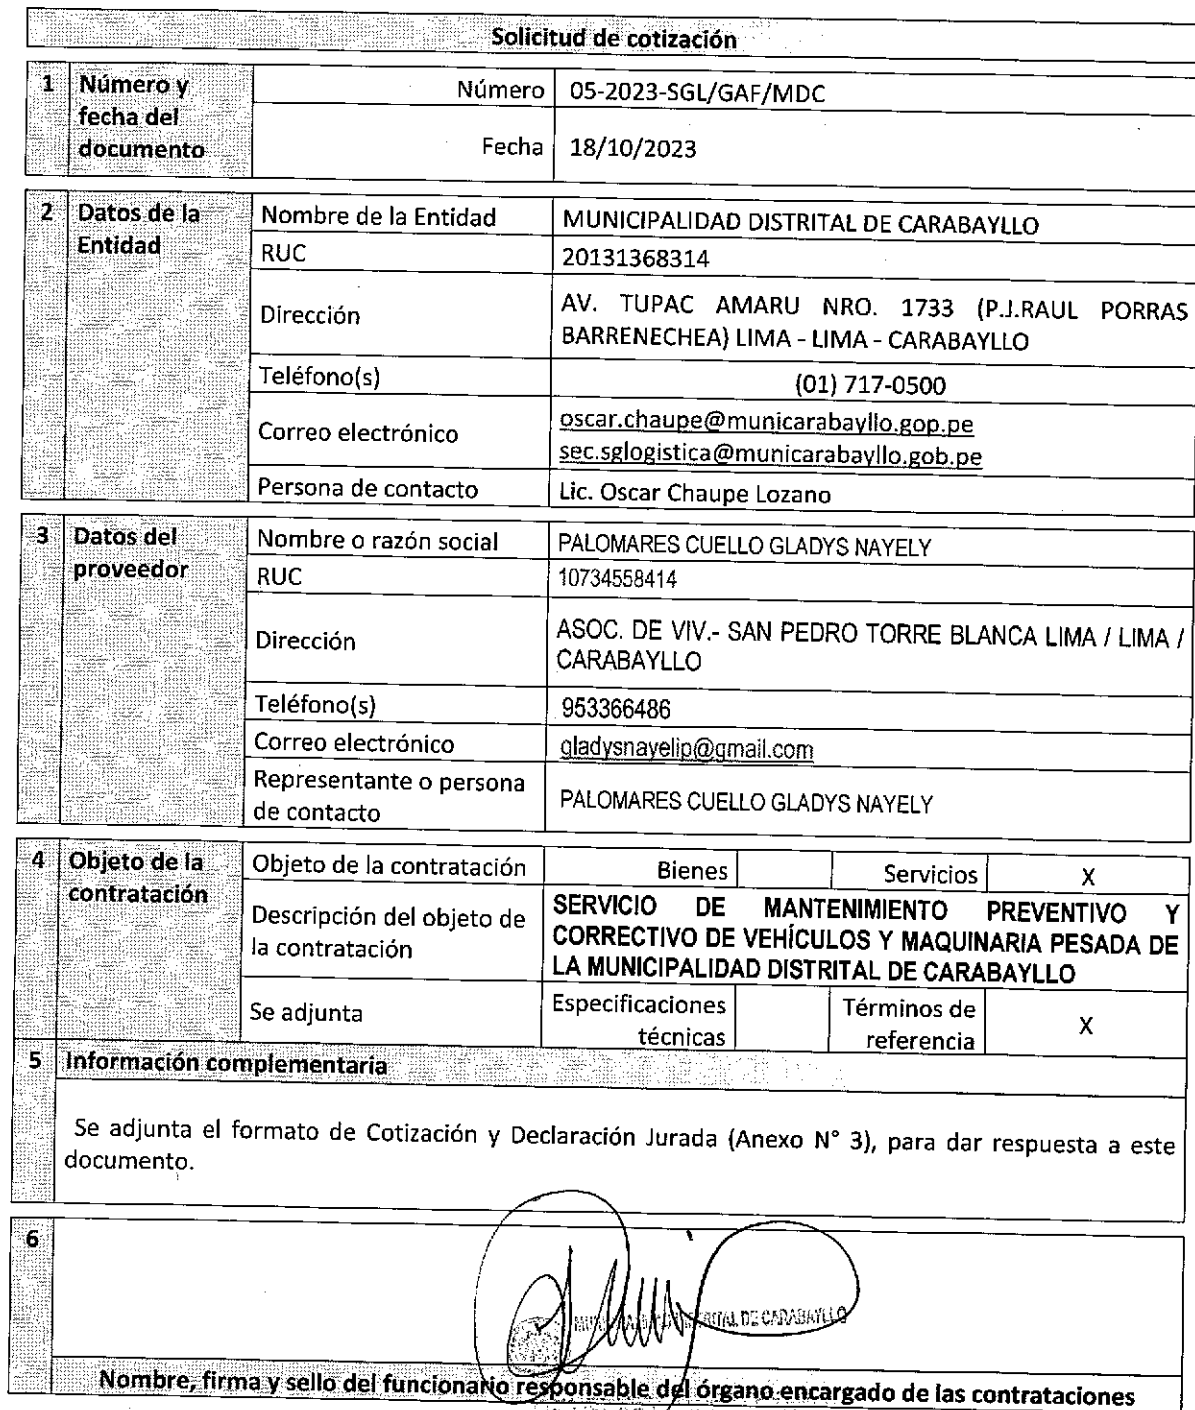 Solicitud de cotización
1 Número y fecha del documento
Número 05-2023-SGL/GAF/MDC
Fecha 18/10/2023
2 Datos de la Entidad
Nombre de la Entidad MUNICIPALIDAD DISTRITAL DE CARABAYLLO
RUC 20131368314
Dirección AV. TUPAC AMARU NRO. 1733 (P.J.RAUL PORRAS
BARRENECHEA) LIMA - LIMA - CARABAYLLO
Teléfono(s) (01) 717-0500
Correo electrónico oscar.chaupe@municarabayllo.gop.pe
sec.sglogistica@municarabayllo.gob.pe
Persona de contacto Lic. Oscar Chaupe Lozano
3 Datos del proveedor
Nombre o razón social PALOMARES CUELLO GLADYS NAYELY
RUC 10734558414
Dirección ASOC. DE VIV.- SAN PEDRO TORRE BLANCA LIMA / LIMA /
CARABAYLLO
Teléfono(s) 953366486
Correo electrónico gladysnayelip@gmail.com
Representante o persona de contacto PALOMARES CUELLO GLADYS NAYELY
4 Objeto de la contratación
Objeto de la contratación Bienes Servicios X
Descripción del objeto de la contratación
SERVICIO DE MANTENIMIENTO PREVENTIVO Y
CORRECTIVO DE VEHÍCULOS Y MAQUINARIA PESADA DE
LA MUNICIPALIDAD DISTRITAL DE CARABAYLLO
Se adjunta Especificaciones técnicas Términos de referencia X
5 Información complementaria
Se adjunta el formato de Cotización y Declaración Jurada (Anexo N° 3), para dar respuesta a este
documento.
6
DE CARABAYLLO
Nombre, firma y sello del funcionario responsable del órgano encargado de las contrataciones